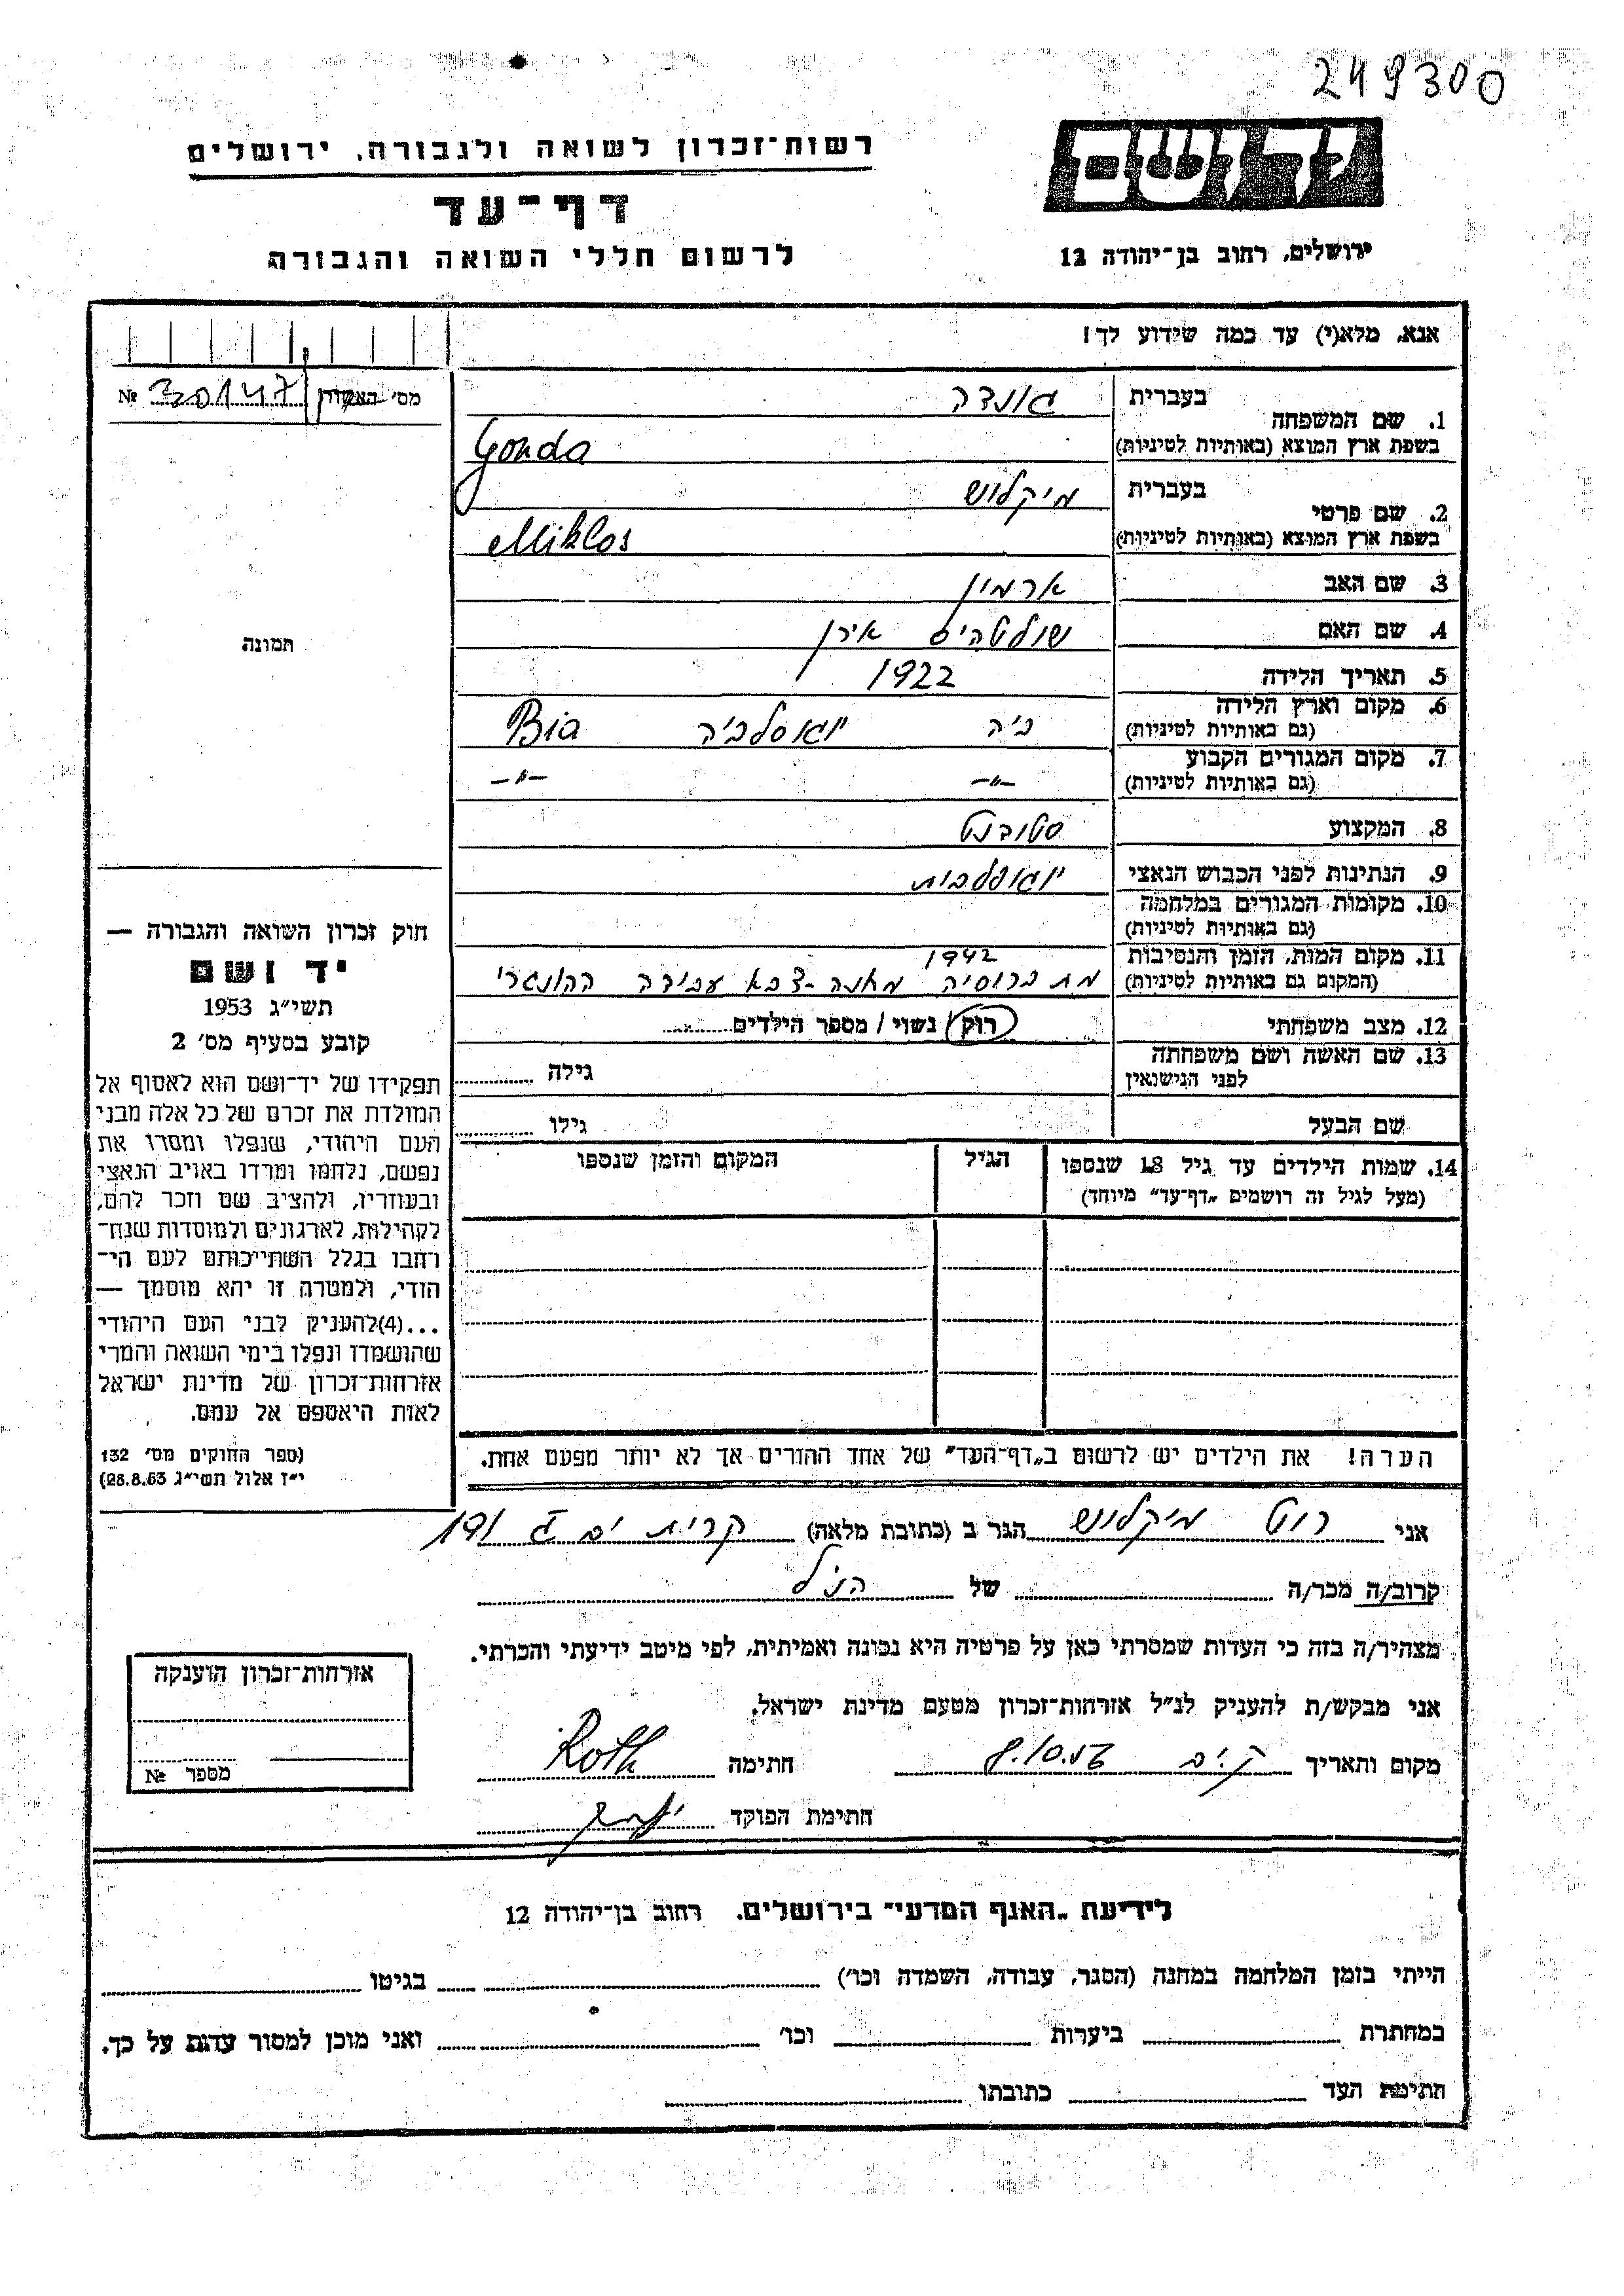 249300
רשות־זכרון לשואה ולגבורה, ירושלים
יד ושם
דף־עד
לרשום חללי השואה והגבורה
ירושלים, רחוב בן־יהודה 12
אנא, מלא(י) עד כמה שידוע לך!
מס׳ № 30147
1. שם המשפחה
בעברית גאנדה
בשפת ארץ המוצא (באותיות לטיניות) Gonda
2. שם פרטי
בעברית מיקלוש
בשפת ארץ המוצא (באותיות לטיניות) Miklos
3. שם האב ארמין
4. שם האם אירן
5. תאריך הלידה 1922
6. מקום וארץ הלידה
(גם באותיות לטיניות) ביה יוגוסלביה Bia
7. מקום המגורים הקבוע
(גם באותיות לטיניות) -״- -״-
8. המקצוע סטודנט
9. הנתינות לפני הכבוש הנאצי יוגוסלבית
10. מקומות המגורים במלחמה
(גם באותיות לטיניות)
11. מקום המות, הזמן והנסיבות 1942
(המקום גם באותיות לטיניות) מת ברוסיה מאנה-צבא עבודה ההונגרי
12. מצב משפחתי רוק / נשוי / מספר הילדים
13. שם האשה ושם משפחתה
לפני הנישואין גילה
שם הבעל גילו
14. שמות הילדים עד גיל 18 שנספו הגיל המקום והזמן שנספו
(מעל לגיל זה רושמים „דף־עד״ מיוחד)
הערה! את הילדים יש לרשום ב„דף־העד״ של אחד ההורים אך לא יותר מפעם אחת.
תמונה
חוק זכרון השואה והגבורה —
יד ושם
תשי״ג 1953
קובע בסעיף מס׳ 2
תפקידו של יד־ושם הוא לאסוף אל
המולדת את זכרם של כל אלה מבני
העם היהודי, שנפלו ומסרו את
נפשם, נלחמו ומרדו באויב הנאצי
ובעוזריו, ולהציב שם וזכר להם,
לקהילות, לארגונים ולמוסדות שנח־
רחבו בגלל השתייכותם לעם הי־
הודי, ולמטרה זו יהא מוסמך —
...(4)להעניק לבני העם היהודי
שהושמדו ונפלו בימי השואה והמרי
אזרחות־זכרון של מדינת ישראל
לאות היאספם אל עמם.
(ספר החוקים מס׳ 132
י״ז אלול תשי״ג 28.8.53)
אני רוט מיקלוש הגר ב (כתובת מלאה) קרית ים ג 191
קרוב/ה מכר/ה של הנ״ל
מצהיר/ה בזה כי העדות שמסרתי כאן על פרטיה היא נכונה ואמיתית, לפי מיטב ידיעתי והכרתי.
אני מבקש/ת להעניק לנ״ל אזרחות־זכרון מטעם מדינת ישראל.
מקום ותאריך ק.ים 8.10.56 חתימה Roth
חתימת הפוקד
אזרחות־זכרון הוענקה
מספר №
לידיעת „האגף המדעי״ בירושלים, רחוב בן־יהודה 12
הייתי בזמן המלחמה במחנה (הסגר, עבודה, השמדה וכו׳) בגיטו
במחתרת ביערות וכו׳ ואני מוכן למסור עדות על כך.
חתימת העד כתובתו